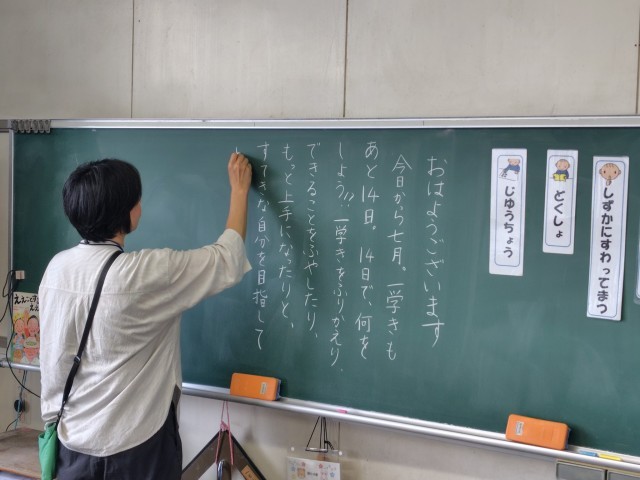 しずかにすわってまつ
とくしょ
じゆうちょう
おはようございます
今日から七月。一学きも
あと14日。14日で、何を
しよう!?一学きをふりかえり、
できることをふやしたり、
もっと上手になったりと、
すてきな自分を目指して